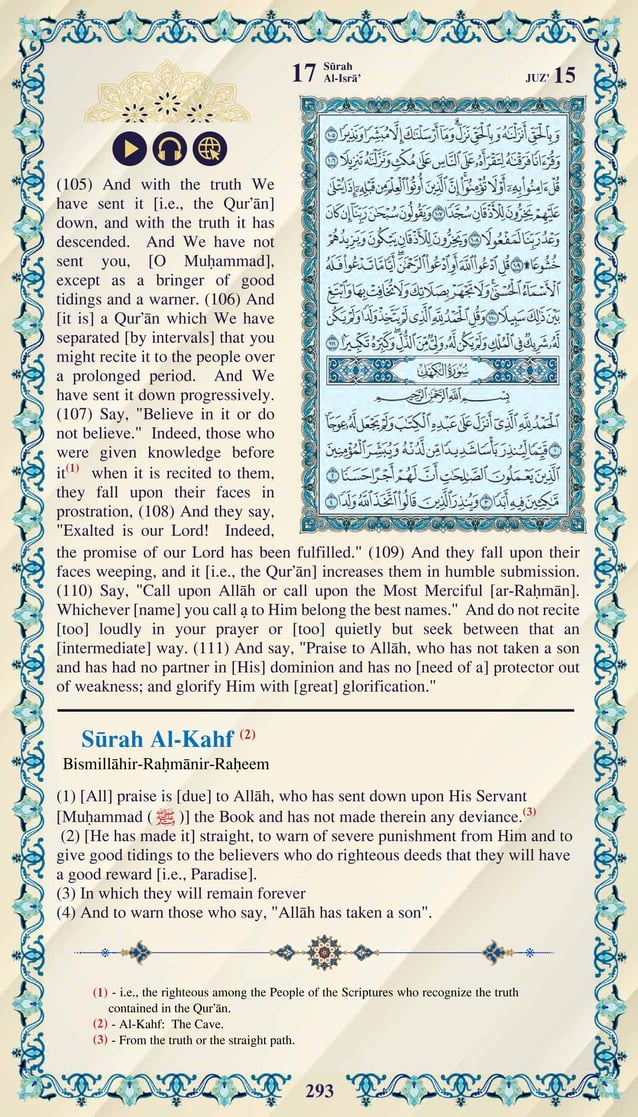 17 Sūrah
Al-Isrā’
JUZ' 15
وَبِٱلْحَقِّ أَنزَلْنَٰهُ وَبِٱلْحَقِّ نَزَلَ ۗ وَمَآ أَرْسَلْنَٰكَ إِلَّا مُبَشِّرًا وَنَذِيرًا ١٠٥
وَقُرْءَانًا فَرَقْنَٰهُ لِتَقْرَأَهُۥ عَلَى ٱلنَّاسِ عَلَىٰ مُكْثٍ وَنَزَّلْنَٰهُ تَنزِيلًا ١٠٦
قُلْ ءَامِنُوا۟ بِهِۦٓ أَوْ لَا تُؤْمِنُوٓا۟ ۚ إِنَّ ٱلَّذِينَ أُوتُوا۟ ٱلْعِلْمَ مِن قَبْلِهِۦٓ إِذَا يُتْلَىٰ
عَلَيْهِمْ يَخِرُّونَ لِلْأَذْقَانِ سُجَّدًا ١٠٧ وَيَقُولُونَ سُبْحَٰنَ رَبِّنَآ إِن كَانَ
وَعْدُ رَبِّنَا لَمَفْعُولًا ١٠٨ وَيَخِرُّونَ لِلْأَذْقَانِ يَبْكُونَ وَيَزِيدُهُمْ
خُشُوعًا ۩ ١٠٩ قُلِ ٱدْعُوا۟ ٱللَّهَ أَوِ ٱدْعُوا۟ ٱلرَّحْمَٰنَ ۖ أَيًّا مَّا تَدْعُوا۟ فَلَهُ
ٱلْأَسْمَآءُ ٱلْحُسْنَىٰ ۚ وَلَا تَجْهَرْ بِصَلَاتِكَ وَلَا تُخَافِتْ بِهَا وَٱبْتَغِ
بَيْنَ ذَٰلِكَ سَبِيلًا ١١٠ وَقُلِ ٱلْحَمْدُ لِلَّهِ ٱلَّذِى لَمْ يَتَّخِذْ وَلَدًا وَلَمْ يَكُن
لَّهُۥ شَرِيكٌ فِى ٱلْمُلْكِ وَلَمْ يَكُن لَّهُۥ وَلِىٌّ مِّنَ ٱلذُّلِّ ۖ وَكَبِّرْهُ تَكْبِيرًۢا ١١١
سُورَةُ الكَهْفِ
بِسْمِ ٱللَّهِ ٱلرَّحْمَٰنِ ٱلرَّحِيمِ
ٱلْحَمْدُ لِلَّهِ ٱلَّذِىٓ أَنزَلَ عَلَىٰ عَبْدِهِ ٱلْكِتَٰبَ وَلَمْ يَجْعَل لَّهُۥ عِوَجَا
١ قَيِّمًا لِّيُنذِرَ بَأْسًا شَدِيدًا مِّن لَّدُنْهُ وَيُبَشِّرَ ٱلْمُؤْمِنِينَ
ٱلَّذِينَ يَعْمَلُونَ ٱلصَّٰلِحَٰتِ أَنَّ لَهُمْ أَجْرًا حَسَنًا ٢
مَّٰكِثِينَ فِيهِ أَبَدًا ٣ وَيُنذِرَ ٱلَّذِينَ قَالُوا۟ ٱتَّخَذَ ٱللَّهُ وَلَدًا ٤
(105) And with the truth We
have sent it [i.e., the Qur’ān]
down, and with the truth it has
descended. And We have not
sent you, [O Muḥammad],
except as a bringer of good
tidings and a warner. (106) And
[it is] a Qur’ān which We have
separated [by intervals] that you
might recite it to the people over
a prolonged period. And We
have sent it down progressively.
(107) Say, "Believe in it or do
not believe." Indeed, those who
were given knowledge before
it(1) when it is recited to them,
they fall upon their faces in
prostration, (108) And they say,
"Exalted is our Lord! Indeed,
the promise of our Lord has been fulfilled." (109) And they fall upon their
faces weeping, and it [i.e., the Qur’ān] increases them in humble submission.
(110) Say, "Call upon Allāh or call upon the Most Merciful [ar-Raḥmān].
Whichever [name] you call ạ to Him belong the best names." And do not recite
[too] loudly in your prayer or [too] quietly but seek between that an
[intermediate] way. (111) And say, "Praise to Allāh, who has not taken a son
and has had no partner in [His] dominion and has no [need of a] protector out
of weakness; and glorify Him with [great] glorification."
Sūrah Al-Kahf (2)
Bismillāhir-Raḥmānir-Raḥeem
(1) [All] praise is [due] to Allāh, who has sent down upon His Servant
[Muḥammad ( ﷺ )] the Book and has not made therein any deviance.(3)
(2) [He has made it] straight, to warn of severe punishment from Him and to
give good tidings to the believers who do righteous deeds that they will have
a good reward [i.e., Paradise].
(3) In which they will remain forever
(4) And to warn those who say, "Allāh has taken a son".
(1) - i.e., the righteous among the People of the Scriptures who recognize the truth
contained in the Qur’ān.
(2) - Al-Kahf: The Cave.
(3) - From the truth or the straight path.
293